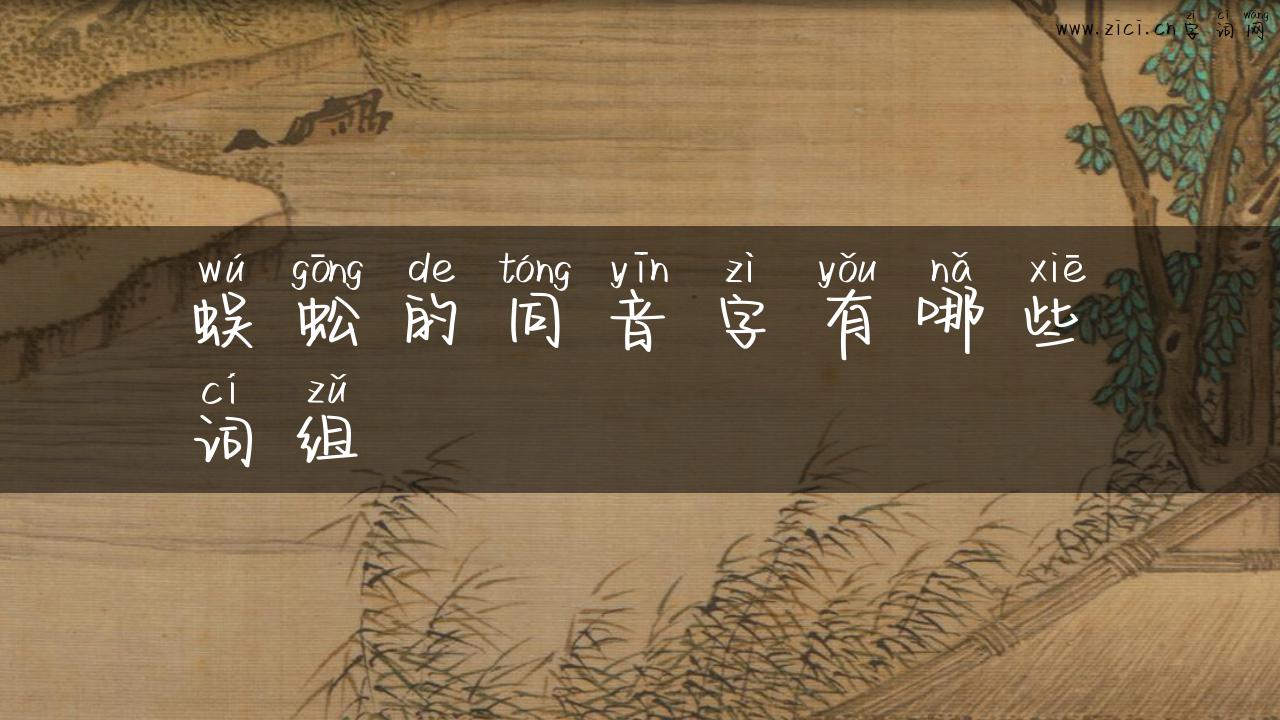 zì cí wǎng
www.zici.cn字词网
wú gōng de tóng yīn zì yǒu nǎ xiē
蜈蚣的同音字有哪些
cí zǔ
词组